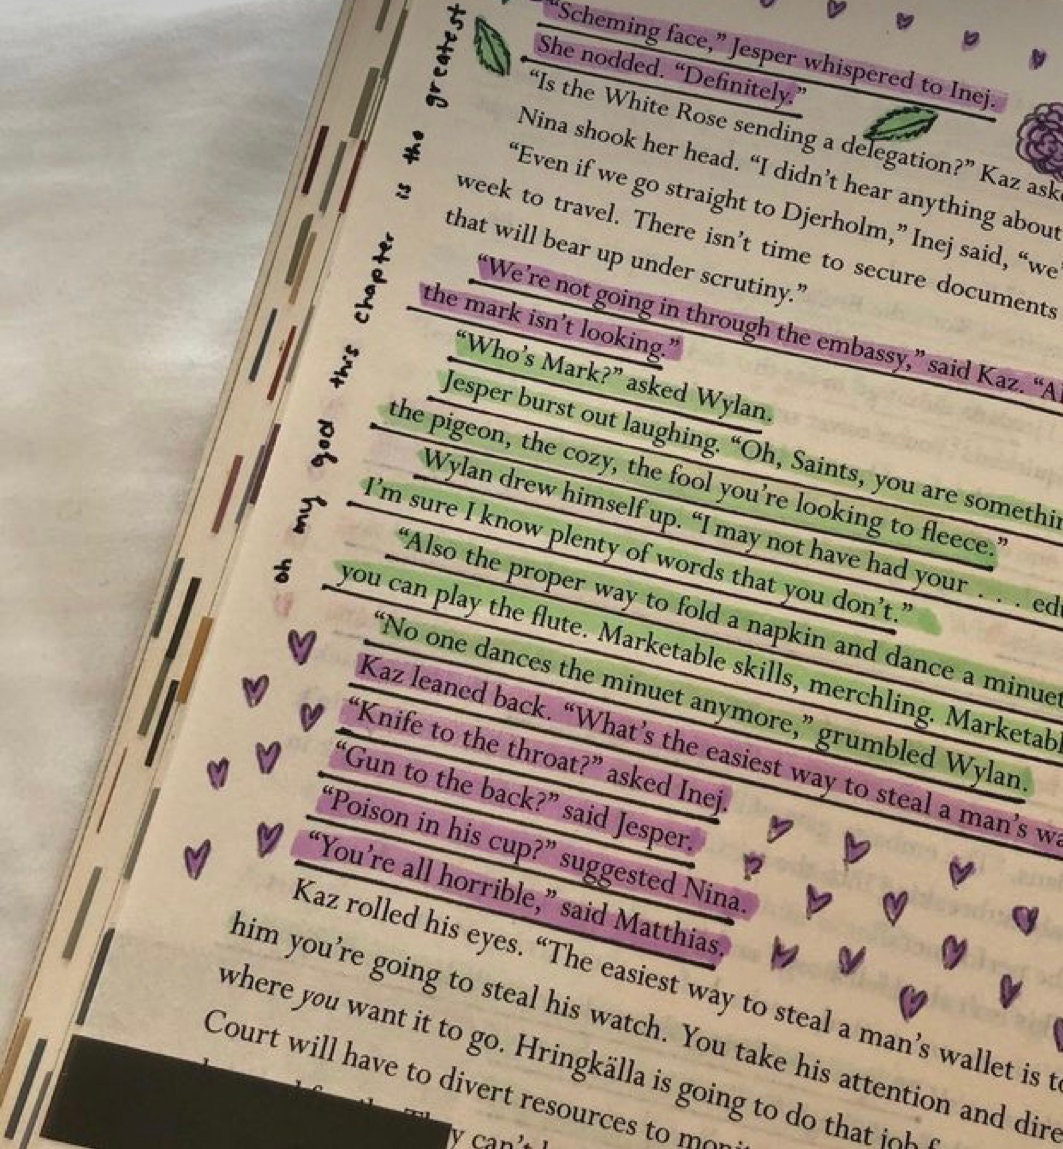 oh my god this chapter is the greatest
“Scheming face,” Jesper whispered to Inej.
She nodded. “Definitely.”
“Is the White Rose sending a delegation?” Kaz
Nina shook her head. “I didn’t hear anything about
“Even if we go straight to Djerholm,” Inej said,
week to travel. There isn’t time to secure documents
that will bear up under scrutiny.”
“We’re not going in through the embassy,” said Kaz.
the mark isn’t looking.”
“Who’s Mark?” asked Wylan.
Jesper burst out laughing. “Oh, Saints, you are
the pigeon, the cozy, the fool you’re looking to fleece.”
Wylan drew himself up. “I may not have had your . . .
I’m sure I know plenty of words that you don’t.”
“Also the proper way to fold a napkin and dance a minuet
you can play the flute. Marketable skills, merchling.
“No one dances the minuet anymore,” grumbled Wylan.
Kaz leaned back. “What’s the easiest way to steal a man’s
“Knife to the throat?” asked Inej.
“Gun to the back?” said Jesper.
“Poison in his cup?” suggested Nina.
“You’re all horrible,” said Matthias.
Kaz rolled his eyes. “The easiest way to steal a man’s wallet is
him you’re going to steal his watch. You take his attention and
where you want it to go. Hringkälla is going to do that job
Court will have to divert resources to
can’t